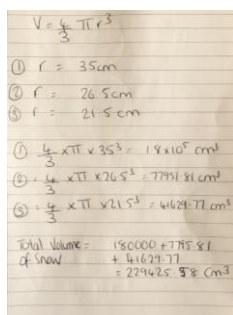 V = 4/3 π r³
① r = 35cm
② r = 26.5cm
③ r = 21.5cm
① 4/3 ×π × 35³ = 1.8×10⁵ cm³
②= 4/3 ×π ×26.5³ = 77951.81 cm³
③= 4/3 ×π ×21.5³ = 41629.77 cm³
Total Volume = 180000 +
of Snow + 41629.77
= 229425.58 cm3